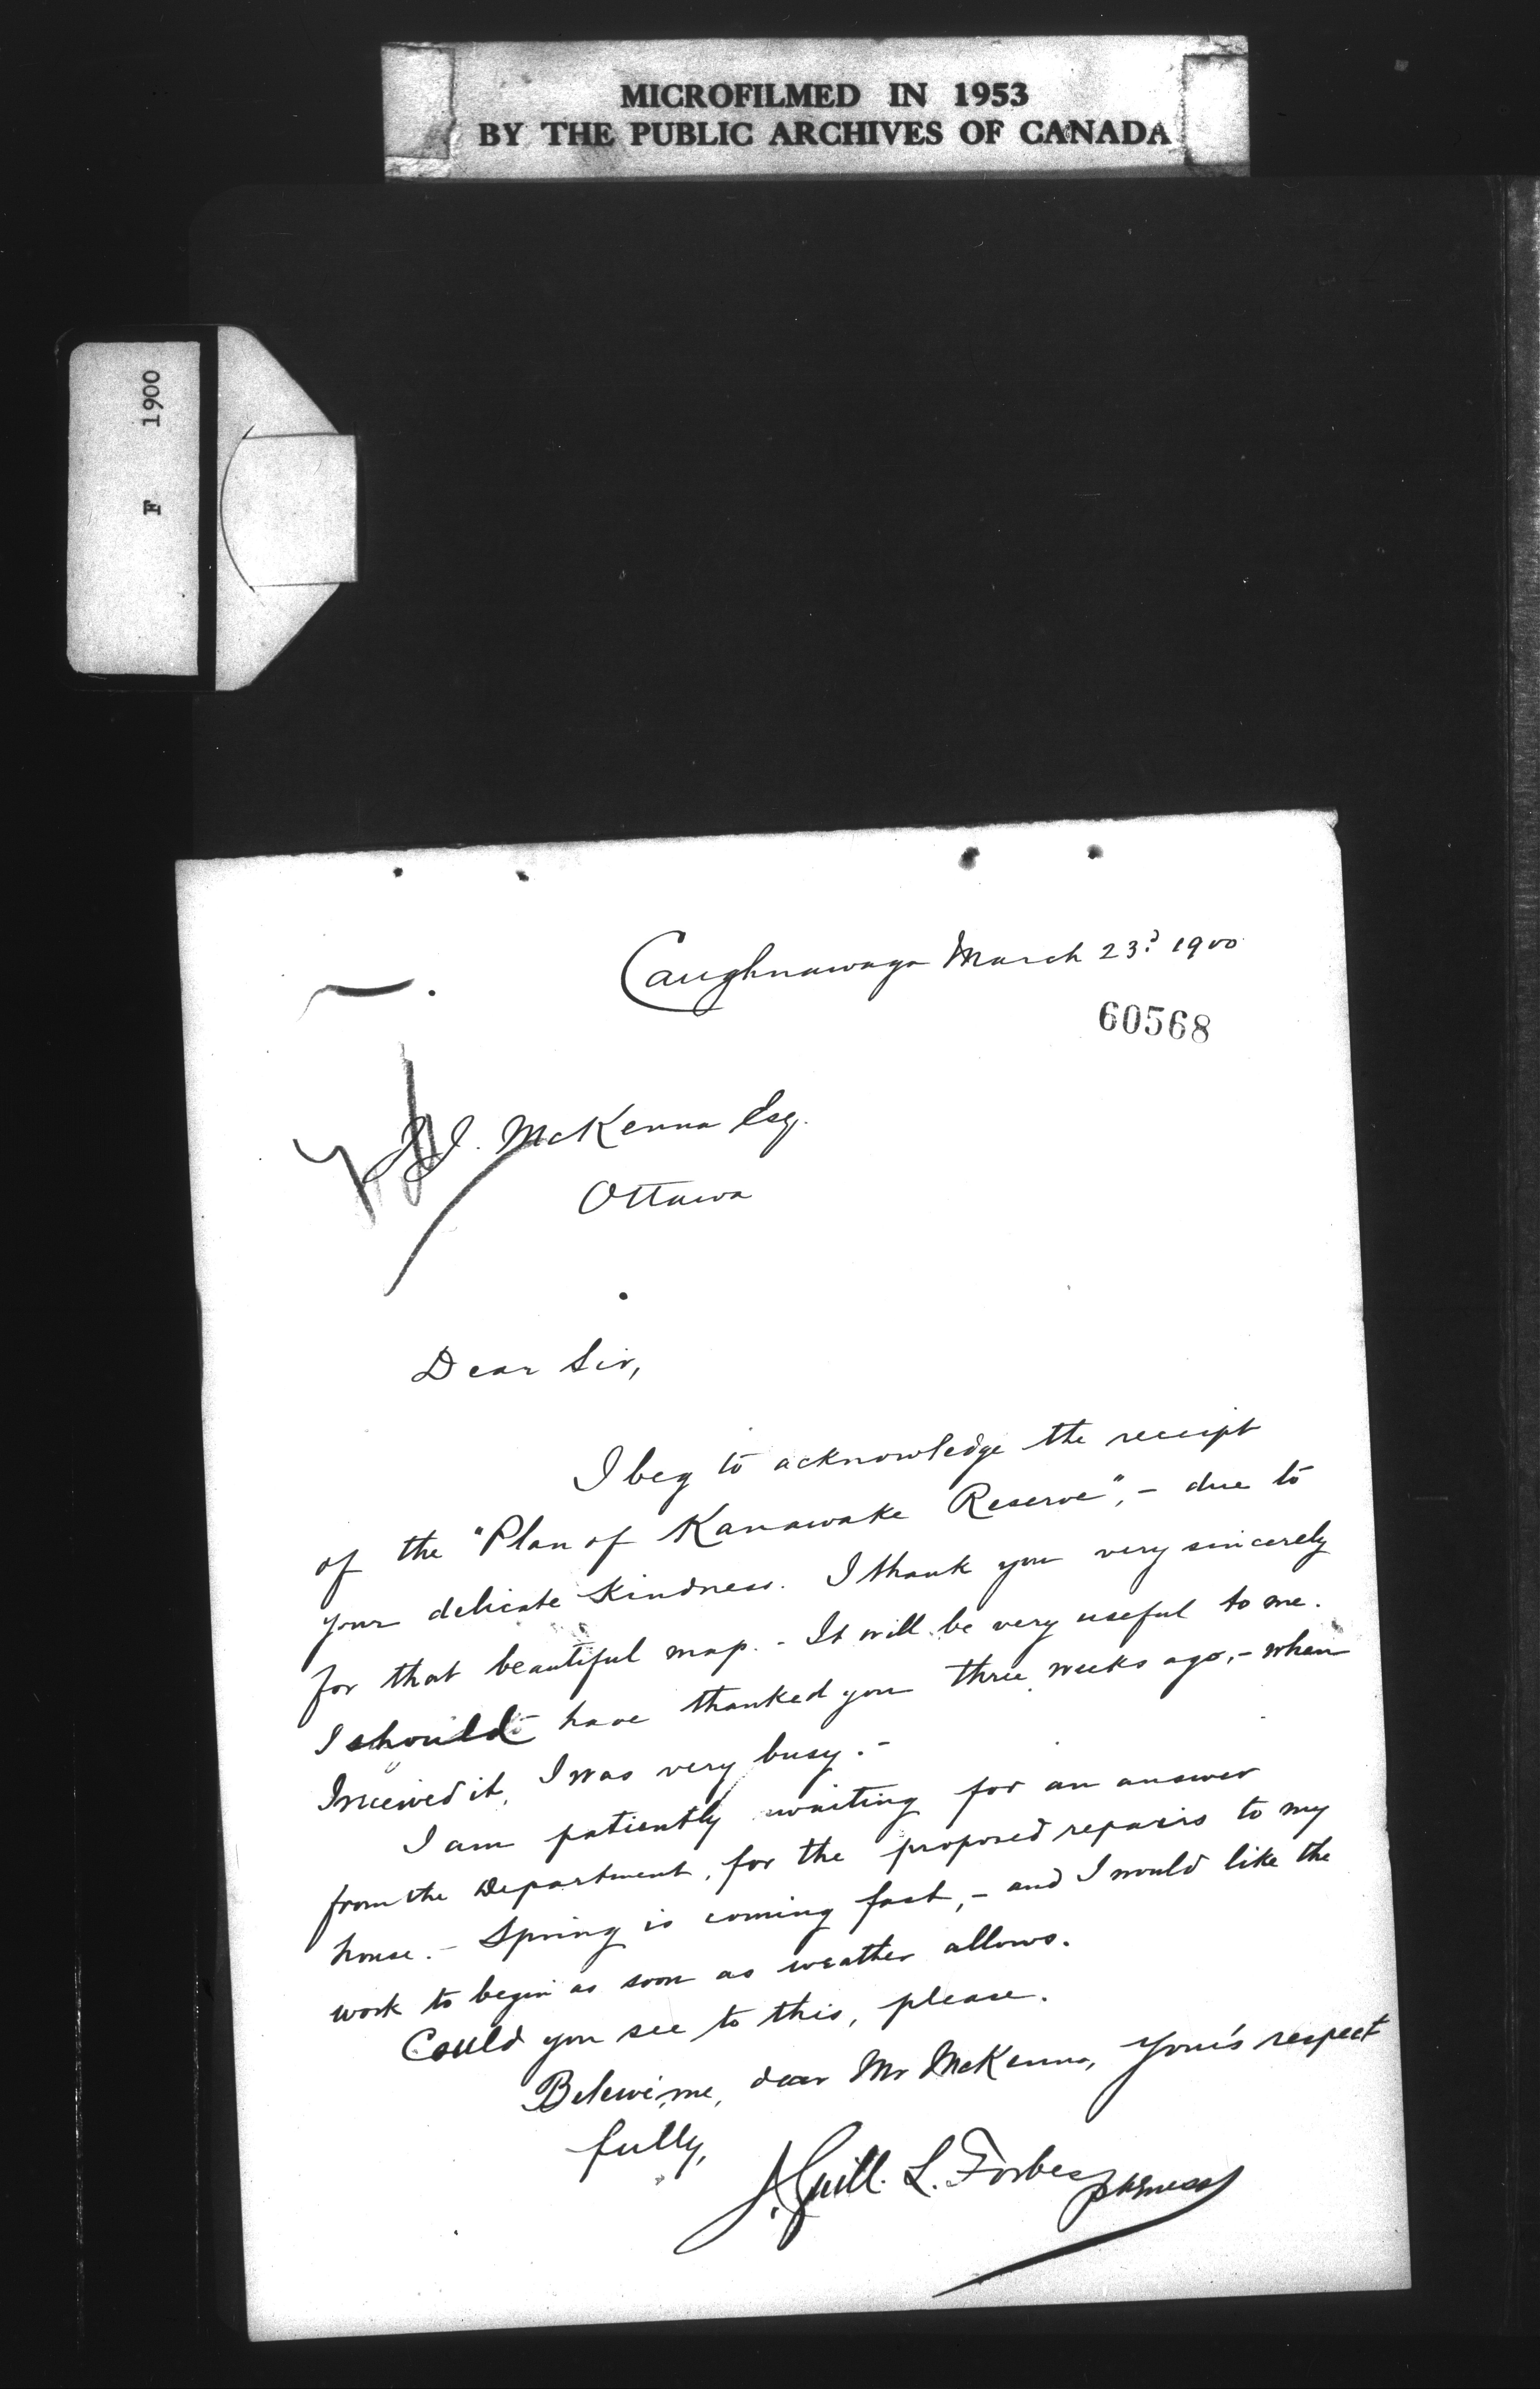 MICROFILMED IN 1953
BY THE PUBLIC ARCHIVES OF CANADA
F 1900
Caughnawaga March 23d 1900
60568
J. McKenna Esq.
Ottawa
Dear Sir,
I beg to acknowledge the receipt
of the "Plan of Kanawake Reserve", - due to
your delicate Kindness. I thank you very sincerely
for that beautiful map. - It will be very useful to me.
I should have thanked you three weeks ago, - when
I received it, I was very busy. -
I am patiently waiting for an answer
from the Department, for the proposed repairs to my
house. - Spring is coming fast, - and I would like the
work to begin as soon as weather allows.
Could you see to this, please.
Beleive me, dear Mr McKenna, Your's respect
fully,
J. Guill. L. Forbes ptre miss